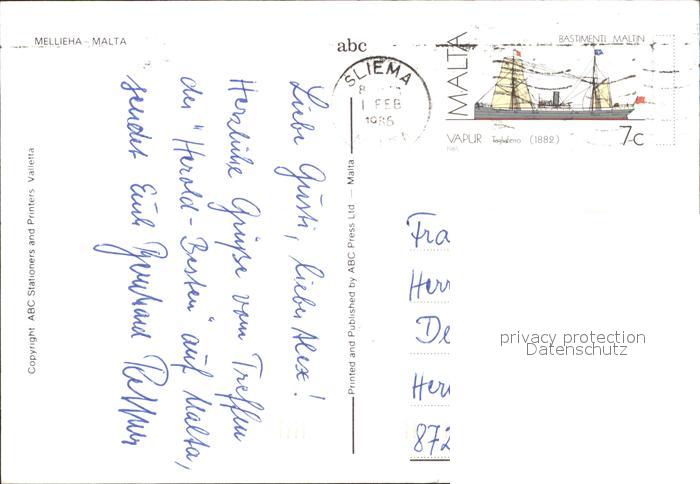 MELLIEHA – MALTA
abc
SLIEMA
1 FEB
1986
MALTA
BASTIMENTI MALTIN
VAPUR Tagħalterra (1882)
7c
Copyright ABC Stationers and Printers Valletta
Printed and Published by ABC Press Ltd — Malta
Liebe Gusti, lieber Alex!
Herzliche Grüße vom Treffen
der "Herold-Besten" auf Malta,
sendet Euch
Fra
Herr
De
Her
872
privacy protection
Datenschutz